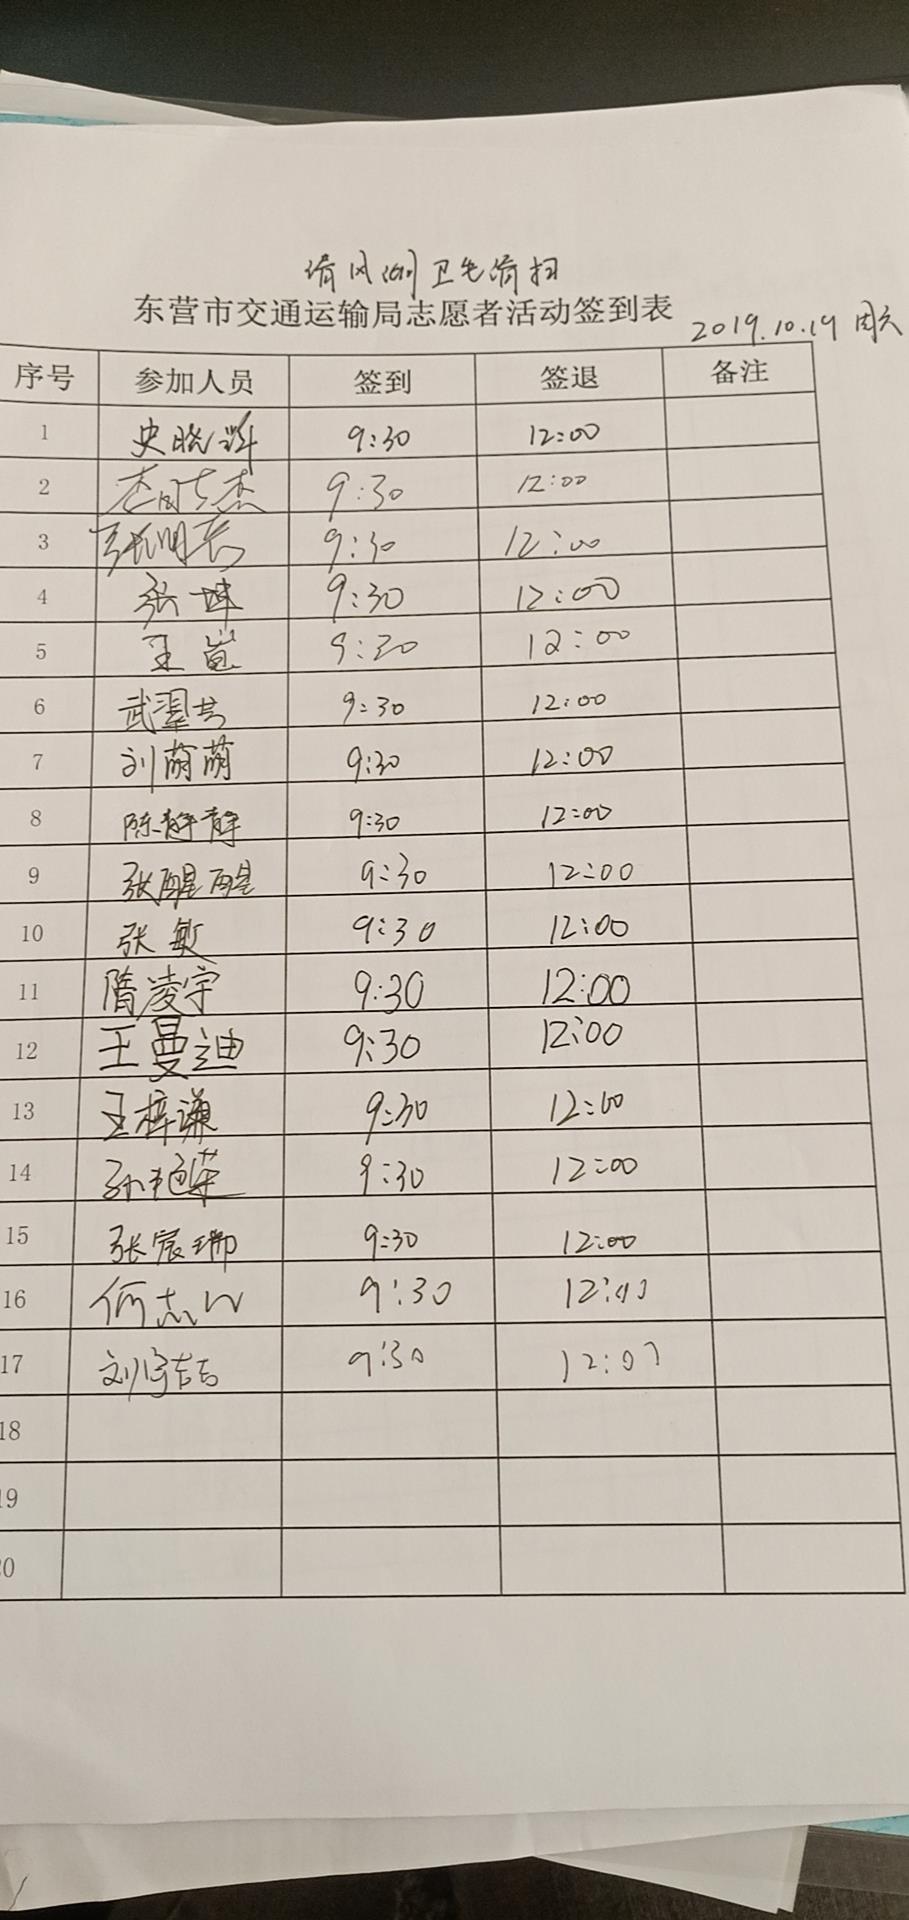 清风湖卫生清扫
东营市交通运输局志愿者活动签到表
2019.10.19 周六
序号 参加人员 签到 签退 备注
1 史晓 9:30 12:00
2 9:30 12:00
3 张 9:30 12:00
4 张坤 9:30 12:00
5 王 9:30 12:00
6 武翠 9:30 12:00
7 刘萌萌 9:30 12:00
8 陈静静 9:30 12:00
9 张醒醒 9:30 12:00
10 张敏 9:30 12:00
11 隋凌宇 9:30 12:00
12 王曼迪 9:30 12:00
13 王梓谦 9:30 12:00
14 孙艳荣 9:30 12:00
15 张宸瑞 9:30 12:00
16 何志 9:30 12:00
17 刘 9:30 12:07
18
19
20